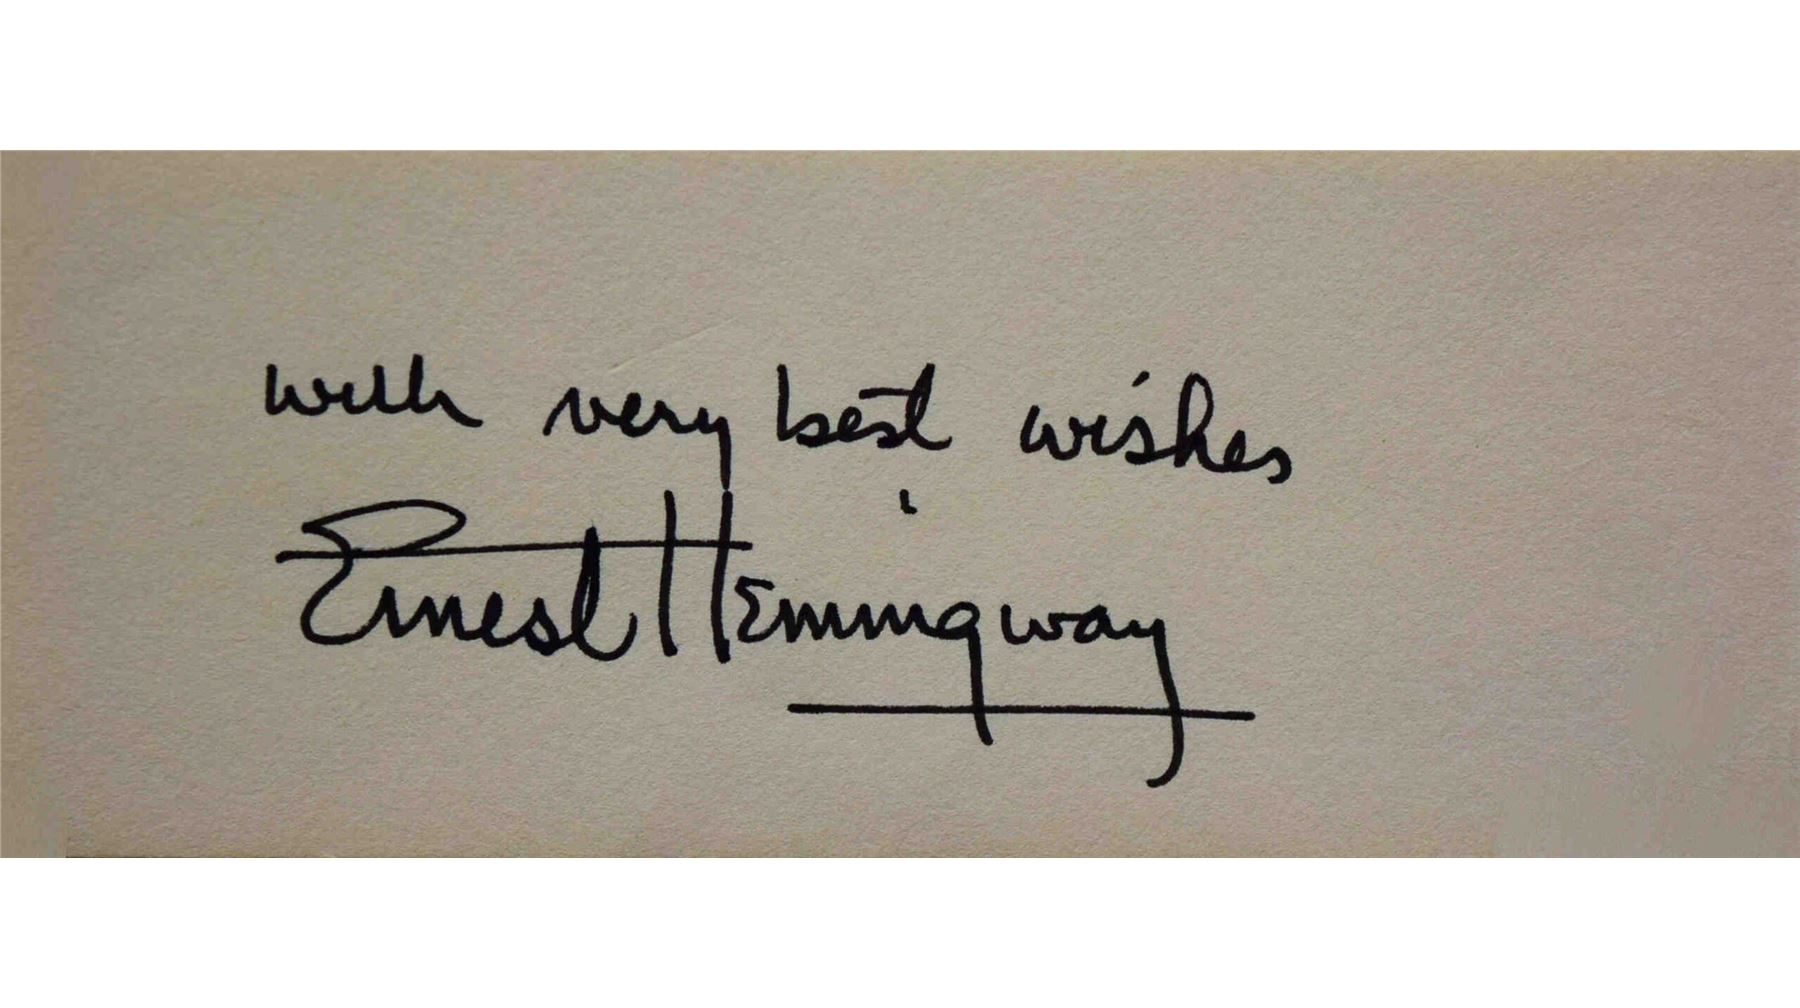 with very best wishes
Ernest Hemingway